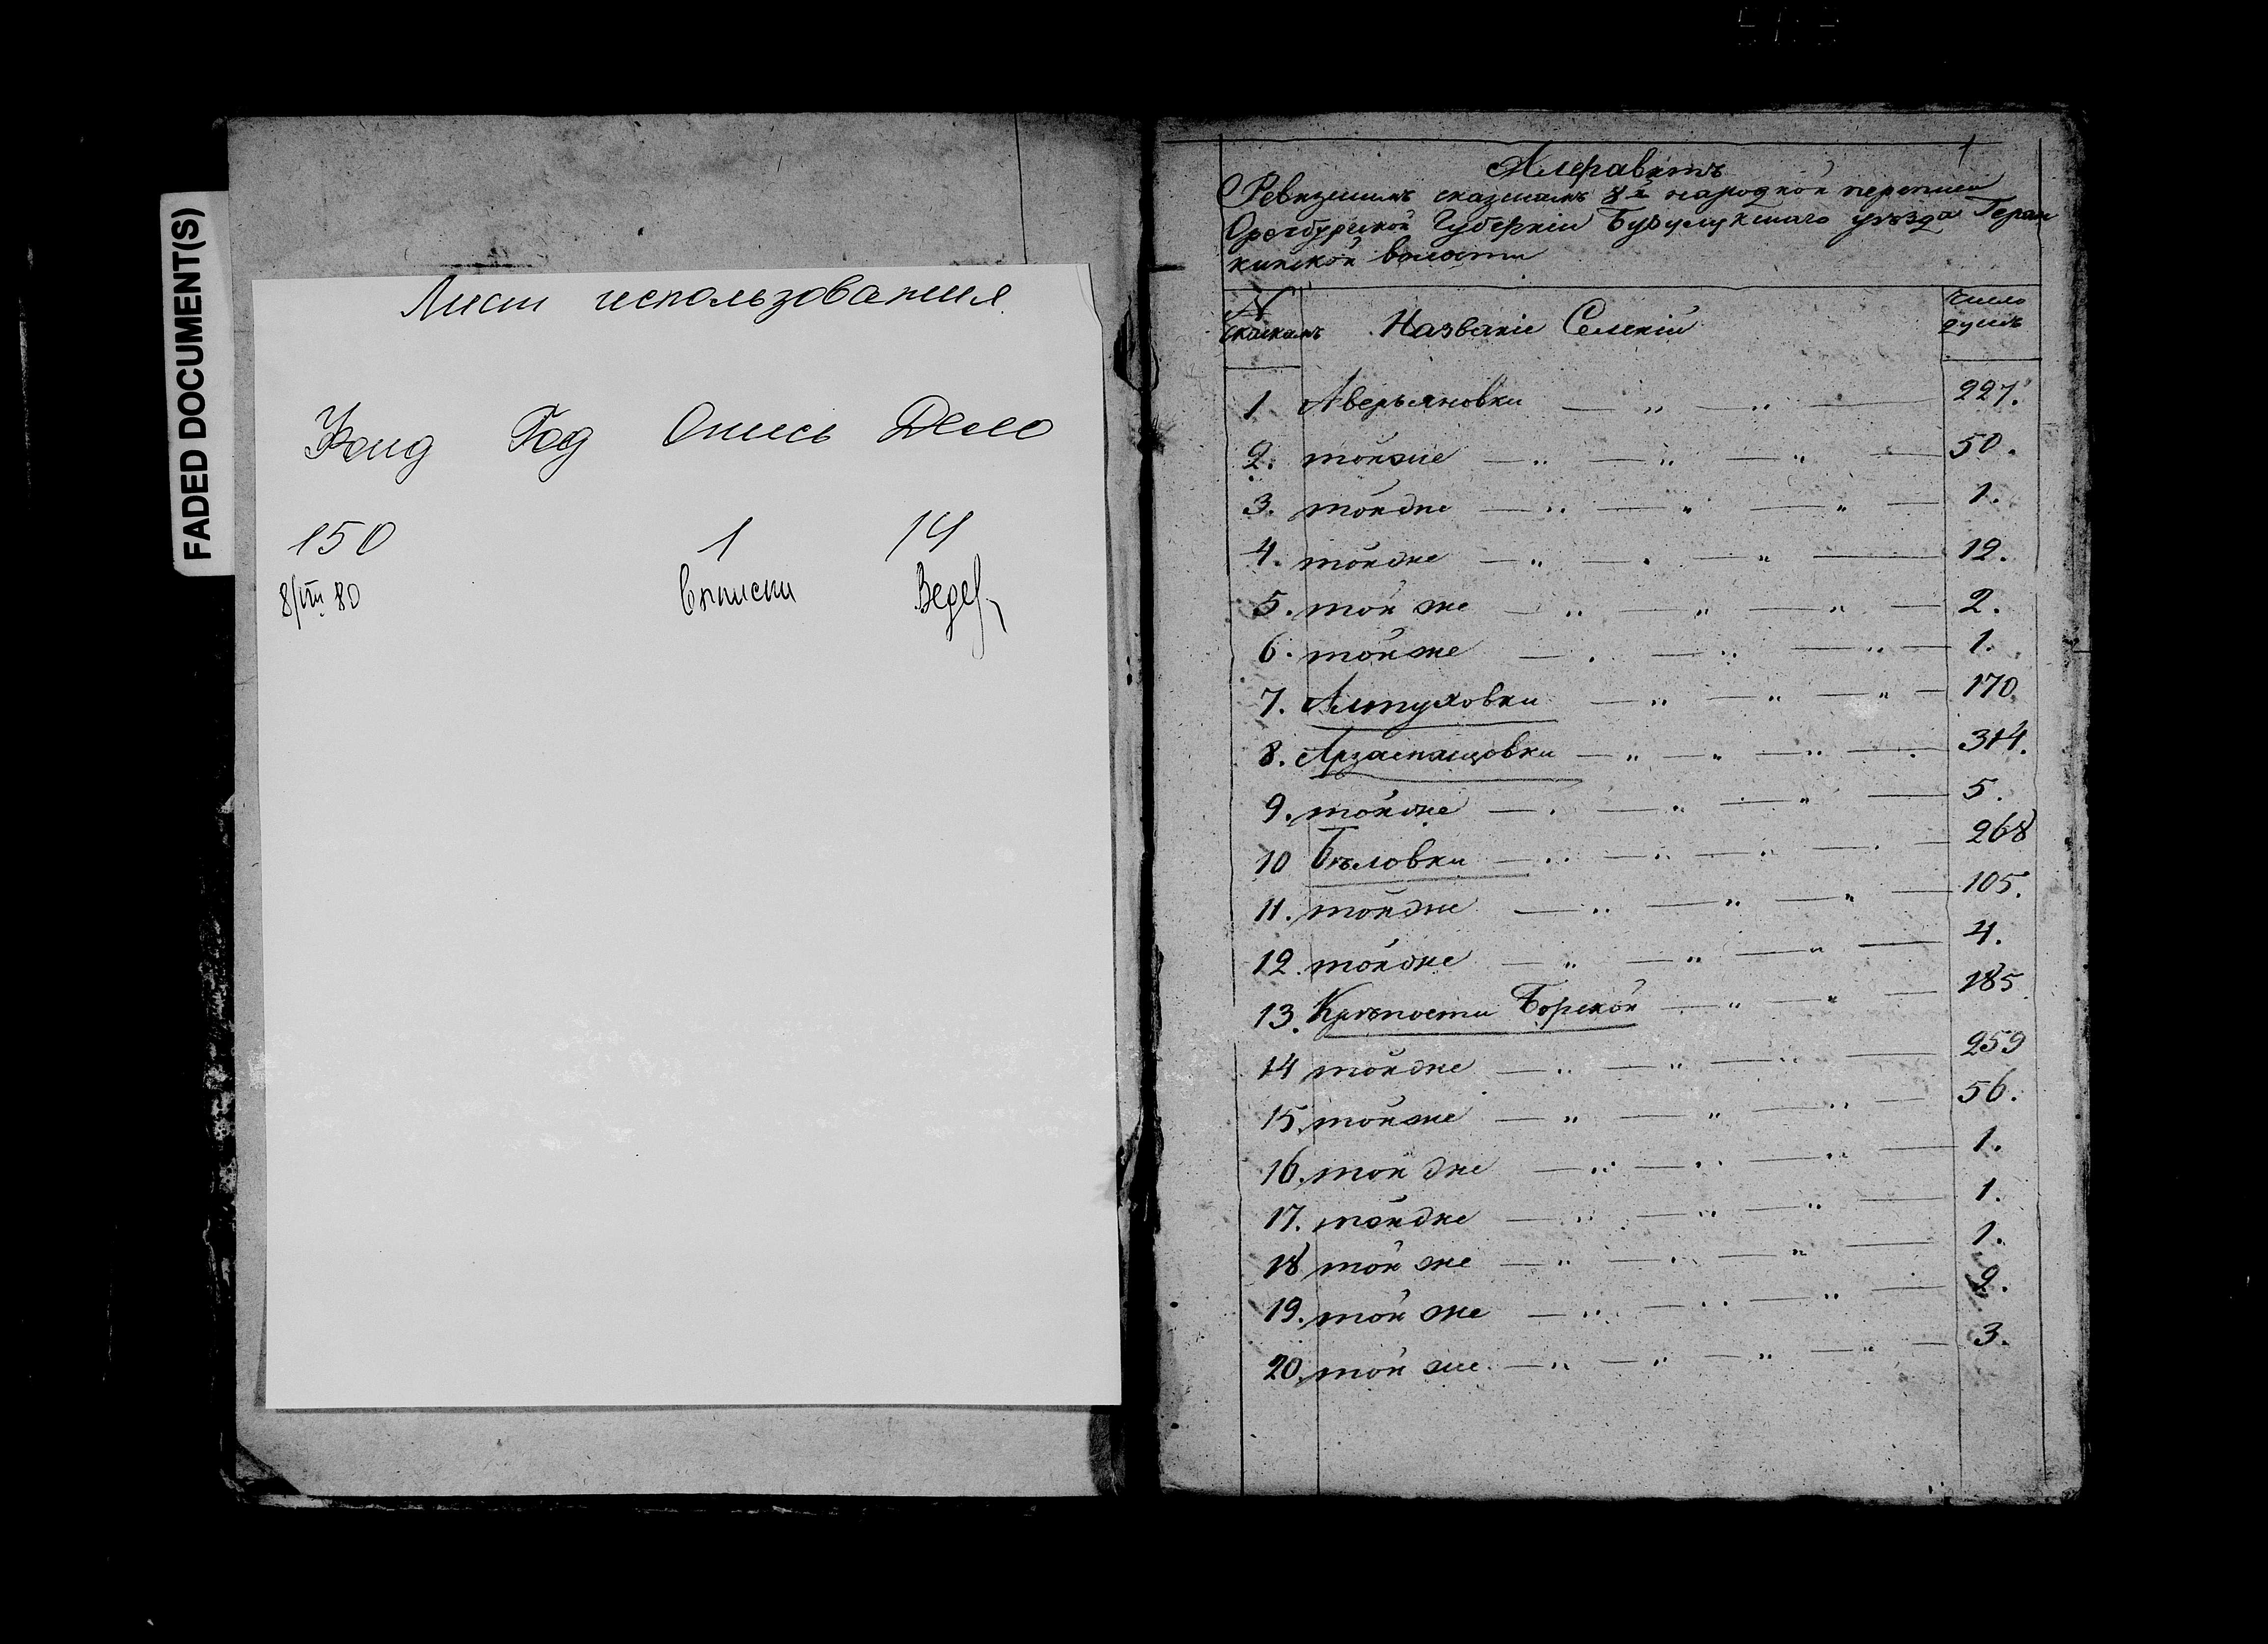 FADED DOCUMENT(S)
Лист использования.
Фонд Год Опись Дело
150 1 14
8/VIII 80 выписки
1
Алфавитъ
Ревизскимъ сказкамъ 8й народной переписи
Оренбургской Губерніи Бузулукскаго уѣзда Геран
кинской волости
№ сказкамъ Названіе Селеній Число душъ
1 Аверьяновки — „ — „ — 227.
2. тойже — „ — „ — „ — 50.
3. тойже — „ — „ — „ — 1.
4. тойже — „ — „ — „ — 12.
5. той же — „ — „ — „ — 2.
6. тойже — „ — „ — „ — 1.
7. Алтуховки — „ — „ — „ — 170
8. — „ — „ — „ — 314.
9. тойже — „ — „ — „ — 5.
10 Бѣловки — „ — „ — „ — „ — 268
11. тойже — „ — „ — „ — 105.
12. тойже — „ — „ — „ — 4.
13. Крѣпости Борской — „ — „ — 185
14 тойже — „ — „ — „ — 259
15. тойже — „ — „ — „ — 56.
16. той же — „ — „ — „ — 1.
17. тойже — „ — „ — „ — 1.
18 той же — „ — „ — „ — 1.
19. той же — „ — „ — „ — 2.
20. той же — „ — „ — „ — „ — 3.